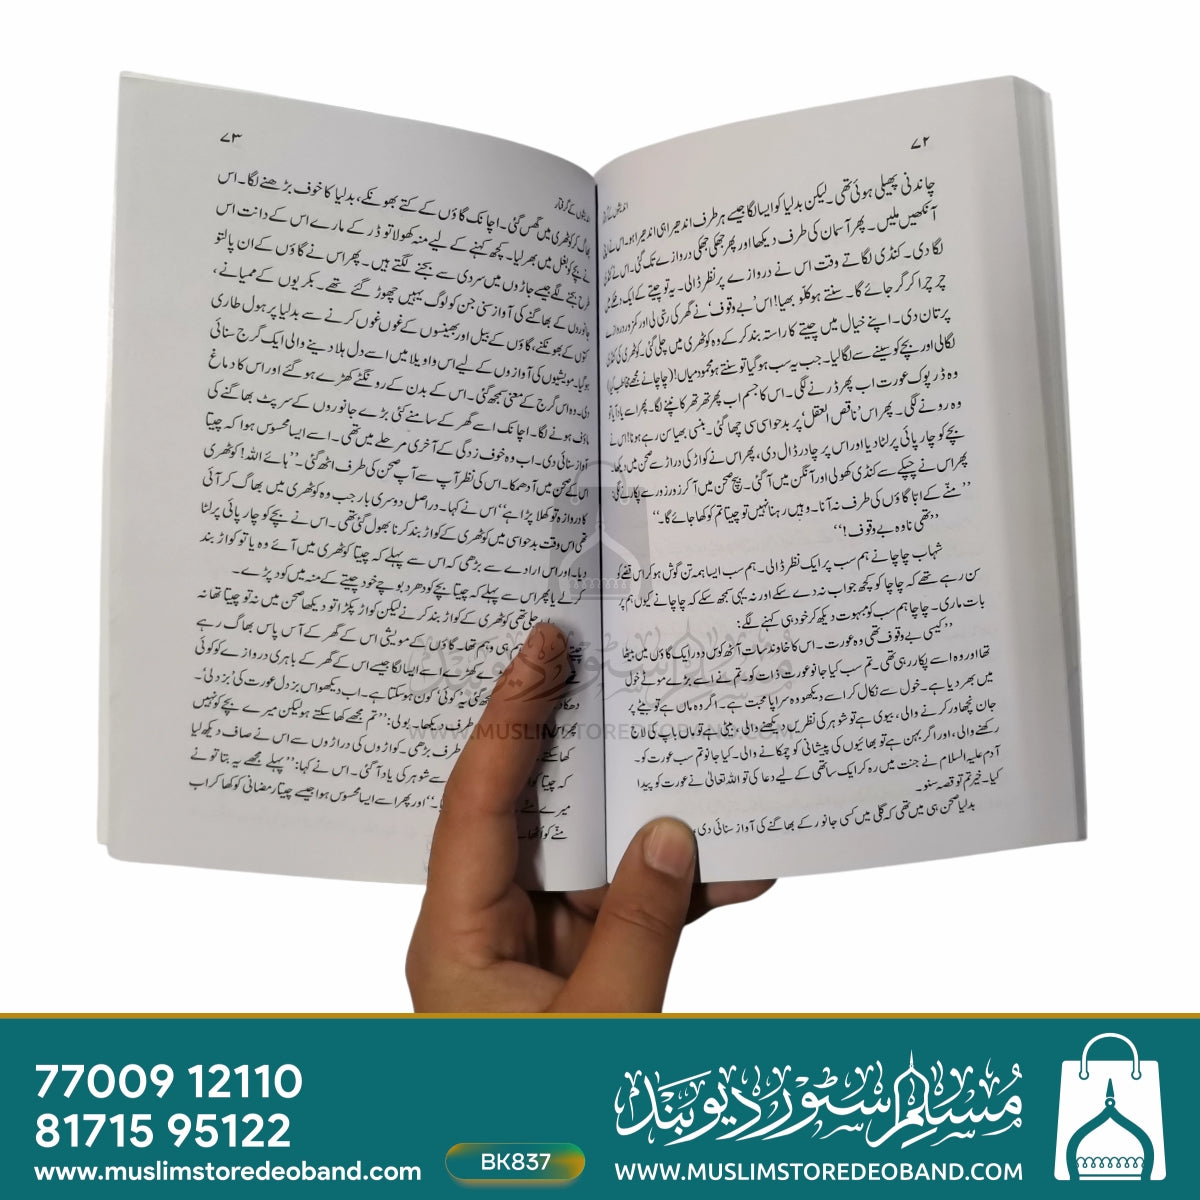 ۷۲
چاندنی پھیلی ہوئی تھی۔ لیکن بدلیا کو ایسا لگا جیسے ہر طرف اندھیرا ہی اندھیرا ہو۔ اس نے
آنکھیں ملیں۔ پھر آسمان کی طرف دیکھا اور پھر جھکی جھکی دروازے تک گئی۔ اس نے کنڈی
لگا دی۔ کنڈی لگاتے وقت اس نے دروازے پر نظر ڈالی۔ یہ تو چیتے کے ایک دھکے میں
چرچرا کر گر جائے گا۔ سنتے ہو کلّو بھیا! اس ’بے وقوف‘ نے گھر کی رسّی لی اور کمزور دروازے
پر تان دی۔ اپنے خیال میں چیتے کا راستہ بند کر کے وہ کوٹھری میں چلی گئی۔ کوٹھری کی کنڈی
لگالی اور بچے کو سینے سے لگا لیا۔ جب یہ سب ہو گیا تو سنتے ہو محمود میاں! (چاچا نے مجھے مخاطب کیا)
وہ ڈرپوک عورت اب پھر ڈرنے لگی۔ اس کا جسم اب پھر تھر تھر کانپنے لگا۔ پھر اسے یاد آیا تو
وہ رونے لگی۔ پھر اس ’ناقص العقل‘ پر بدحواسی سی چھا گئی۔ بنسی بھیا سن رہے ہو نا! اس نے
بچے کو چارپائی پر لٹا دیا اور اس پر چادر ڈال دی، پھر اس نے کواڑ کی دراڑ سے صحن میں دیکھا،
پھر اس نے چپکے سے کنڈی کھولی اور آنگن میں آ گئی۔ بیچ صحن میں آ کر زور زور سے پکارنے لگی:
’’منّے کے ابّا گاؤں کی طرف نہ آنا۔ وہیں رہنا نہیں تو چیتا تم کو کھا جائے گا۔‘‘
’’تھی نا وہ بے وقوف!‘‘
شہاب چاچا نے ہم سب پر ایک نظر ڈالی۔ ہم سب ایسا ہمہ تن گوش ہو کر اس قصّے کو
سن رہے تھے کہ چاچا کو کچھ جواب نہ دے سکے اور نہ یہی سمجھ سکے کہ چاچا نے کیوں ہم پر
بات ماری۔ چاچا ہم سب کو مبہوت دیکھ کر خود ہی کہنے لگے:
’’کیسی بے وقوف تھی وہ عورت۔ اس کا خاوند سات آٹھ کوس دور ایک گاؤں میں بیٹھا
تھا اور وہ اسے پکار رہی تھی۔ تم سب کیا جانو عورت ذات کو۔ تم نے اسے بڑے موٹے خول
میں بھر دیا ہے۔ خول سے نکال کر اسے دیکھو وہ سراپا محبت ہے۔ اگر وہ ماں ہے تو بیٹے پر
جان نچھاور کرنے والی، بیوی ہے تو شوہر کی نظریں دیکھنے والی، بیٹی ہے تو ماں باپ کی لاج
رکھنے والی، اور اگر بہن ہے تو بھائیوں کی پیشانی کو چمکانے والی۔ کیا جانو تم سب عورت کو۔
آدم علیہ السلام نے جنت میں رہ کر ایک ساتھی کے لیے دعا کی تو اللہ تعالیٰ نے عورت کو پیدا
کیا۔ خیر تم تو قصہ سنو۔
بدلیا صحن ہی میں تھی کہ گلی میں کسی جانور کے بھاگنے کی آواز سنائی دی،
۷۳
اندیشوں کے گرفتار
بھاگ کر کوٹھری میں گھس گئی۔ اچانک گاؤں کے کتے بھونکے، بدلیا کا خوف بڑھنے لگا۔ اس
نے بچے کو بغل میں بھر لیا۔ کچھ کہنے کے لیے منہ کھولا تو ڈر کے مارے اس کے دانت اس
طرح بجنے لگے جیسے جاڑوں میں سردی سے بجنے لگتے ہیں۔ پھر اس نے گاؤں کے ان پالتو
جانوروں کے بھاگنے کی آواز سنی جن کو لوگ یہیں چھوڑ گئے تھے۔ بکریوں کے ممیانے،
کتوں کے بھونکنے، گاؤں کے بیل اور بھینسوں کے غوں غوں کرنے سے بدلیا پر ہول طاری
ہو گیا۔ مویشیوں کی آوازوں کے لیے اس واویلا میں اسے دل ہلا دینے والی ایک گرج سنائی
دی۔ وہ اس گرج کے معنی سمجھ گئی۔ اس کے بدن کے رونگٹے کھڑے ہو گئے اور اس کا دماغ
ماؤف ہونے لگا۔ اچانک اسے گھر کے سامنے کئی بڑے جانوروں کے سرپٹ بھاگنے کی
آواز سنائی دی۔ اب وہ خوف زدگی کے آخری مرحلے میں تھی۔ اسے ایسا محسوس ہوا کہ چیتا
اس کے صحن میں آ دھمکا۔ اس کی نظر آپ سے آپ صحن کی طرف اٹھ گئی۔ ’’ہائے اللہ! کوٹھری
کا دروازہ تو کھلا پڑا ہے‘‘ اس نے کہا۔ دراصل دوسری بار جب وہ کوٹھری میں بھاگ کر آئی
تھی اس وقت بدحواسی میں کوٹھری کے کواڑ بند کرنا بھول گئی تھی۔ اس نے بچے کو چارپائی پر لٹا
دیا۔ اور اس ارادے سے بڑھی کہ اس سے پہلے کہ چیتا کوٹھری میں آئے وہ یا تو کواڑ بند
کر لے یا پھر اس سے پہلے کہ چیتا بچے کو دھر دبوچے خود چیتے کے منہ میں کود پڑے۔
چلی تھی کوٹھری کے کواڑ بند کرنے لیکن کواڑ پکڑا تو دیکھا صحن میں نہ تو چیتا تھا نہ
چیتے ہم ہی وہم تھا۔ گاؤں کے مویشی اس کے گھر کے آس پاس بھاگ رہے
تھے ے کھڑے اسے ایسا لگا جیسے اس کے گھر کے باہری دروازے کو کوئی
دھکا جھ گئی یہ ’کوئی‘ کون ہو سکتا ہے۔ اب دیکھو اس بزدل عورت کی ’بزدلی‘۔
طرف دیکھا۔ بولی: ’’تم مجھے کھا سکتے ہو لیکن میرے بچے کو نہیں
کھا سکتے طرف بڑھی۔ کواڑوں کی دراڑوں سے اس نے صاف دیکھ لیا
کہ چیتا کو سے شوہر کی یاد آ گئی۔ اس نے کہا: ’’پہلے مجھے یہ بتا تو نے
میرے منے ۔‘‘ اور پھر اسے ایسا محسوس ہوا جیسے چیتا رمضانی کو کھا کر اب
منّے کو اٹھا
مسلم سٹور دیوبند
WWW.MUSLIMSTOREDEOBAND.COM
77009 12110
81715 95122
www.muslimstoredeoband.com
BK837
مسلم سٹور دیوبند
WWW.MUSLIMSTOREDEOBAND.COM